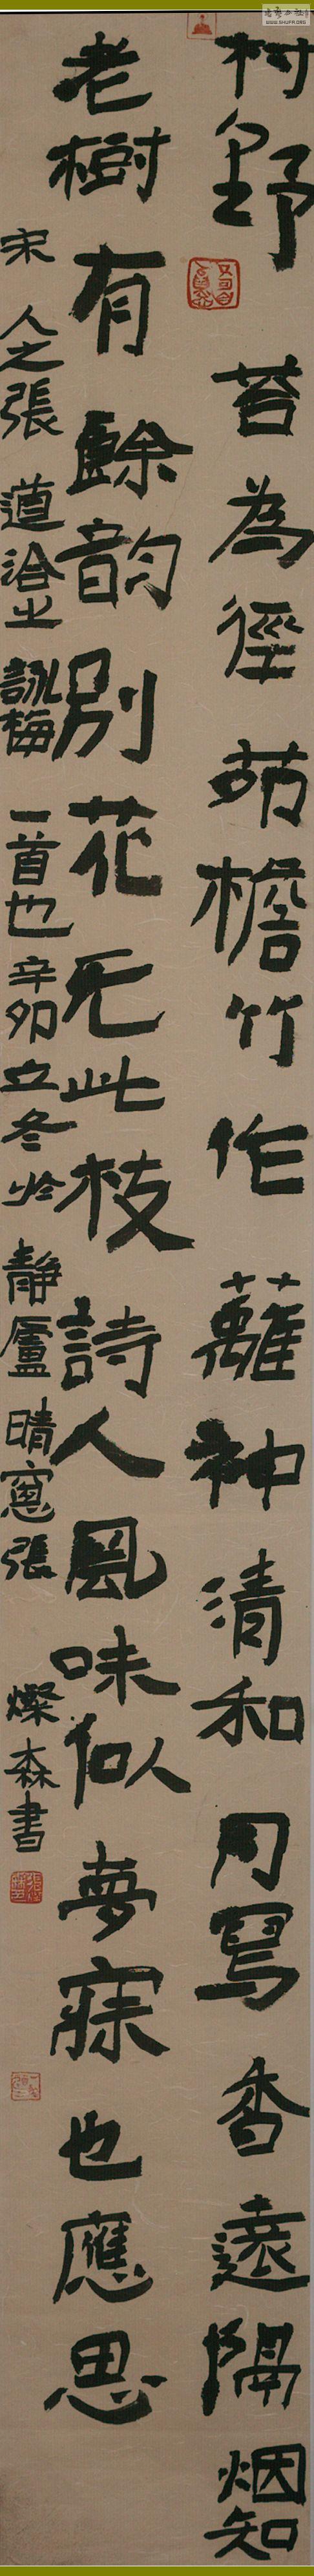 村野苔為徑茆檐竹作蘺神清和月寫香遠隔烟知
老樹有餘韵别花无此枝詩人風味似夢寐也應思
宋人之張道洽之詠梅一首也辛卯立冬於靜廬晴窻張燦森書
WWW.SHUFA.ORG